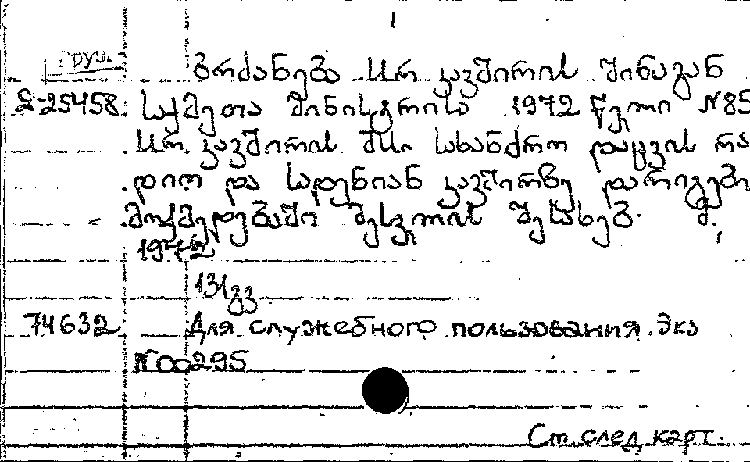 груз.
ბრძანება სსრ კავშირის შინაგან
2-25458. საქმეთა მინისტრისა 1972 წელი №85
სსრ კავშირის შს სახანძრო დაცვის რა
დიო და სადენიან კავშირზე დარიგები
მოქმედებაში შესვლის შესახებ. მ.,
1972
131გვ.
74632 Для служебного пользования. Экз
№00295
См. след. карт.